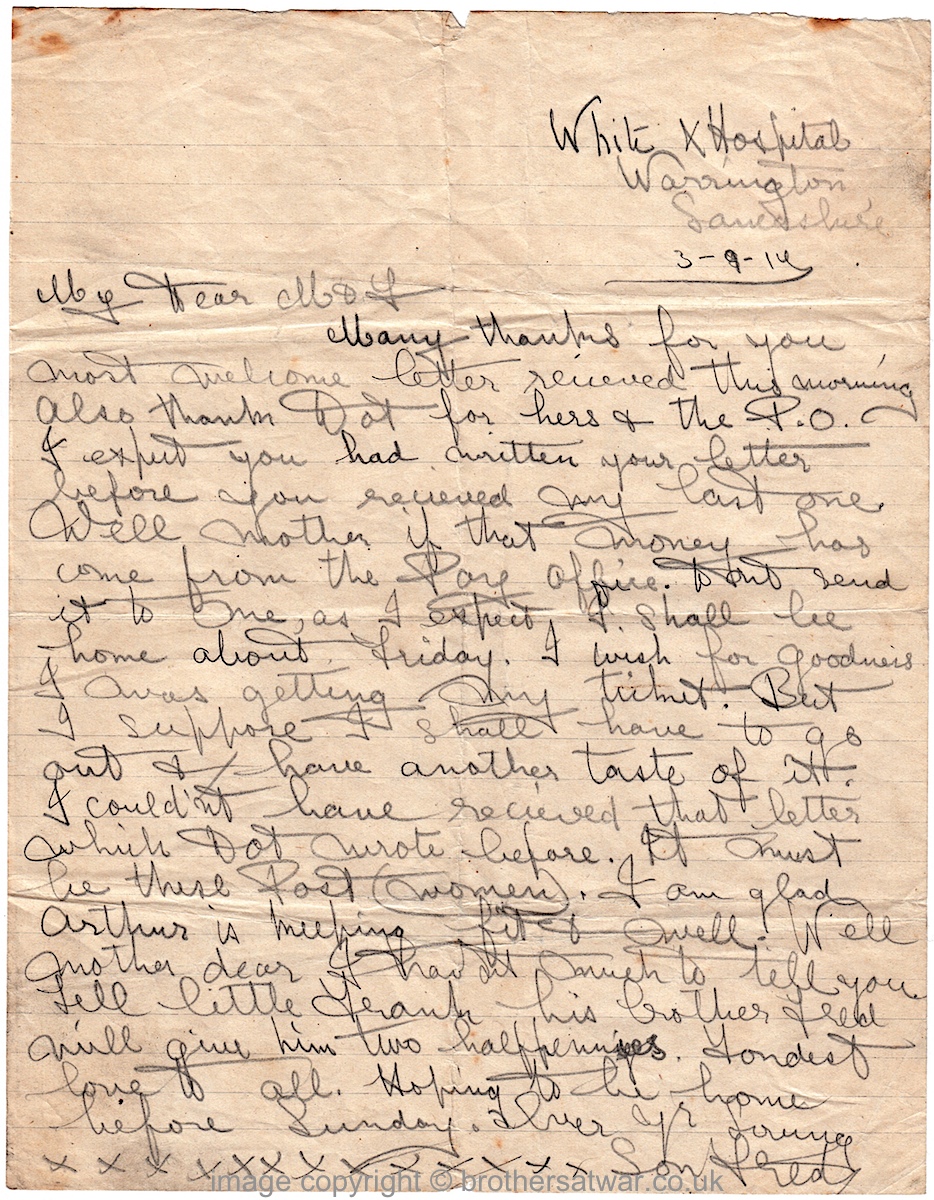 White X Hospital
Warrington
Lancashire
3-9-14
My Dear M & F
Many thanks for you
most welcome letter recieved this morning
also thank Dot for hers & the P.O.
I expect you had written your letter
before you recieved my last one
Well mother if that money has
come from the Pay Office. Dont send
it to me, as I expect I shall be
home about Friday. I wish for goodness
I was getting my ticket. But
I suppose I shall have to go
out & have another taste of it.
I could'nt have recieved that letter
which Dot wrote before. It must
be these Post (women). I am glad
Arthur is keeping fit & well. Well
mother dear I hav'nt much to tell you
Tell little Frank his brother Fred
will give him two halfpennies. Fondest
love to all. Hoping to be home
before Sunday. Ever yr loving
x x x x x x x x x x x x x x Son Fred
image copyright © brothersatwar.co.uk